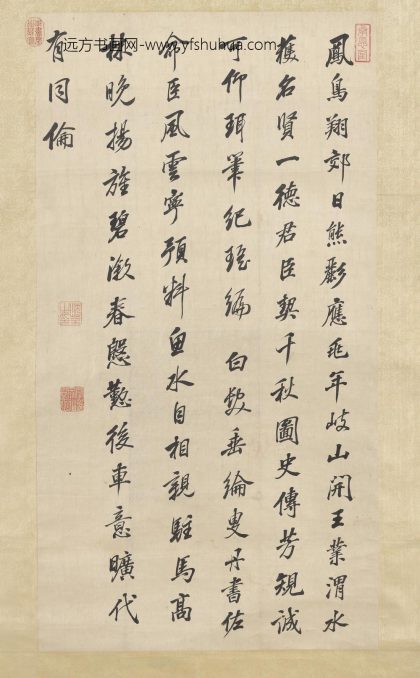 远方书画网-www.yfshuhua.com
鳳鳥翔郊日熊彲應兆年岐山開王業渭水
獲名賢一德君臣契千秋圖史傳芳規誠
可仰珥筆紀瑤編 白髮垂綸叟丹書佐
命臣風雲寧預料魚水自相親駐馬高
林晚揚旌碧漵春慇懃後車意曠代
有同倫